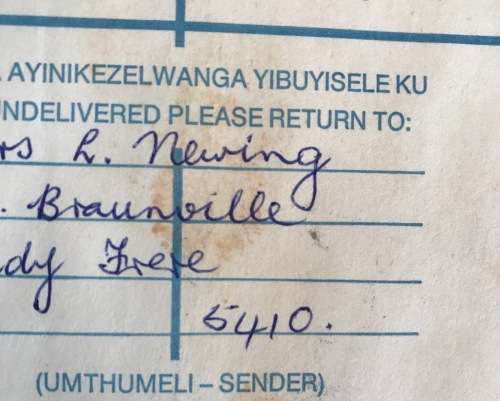 AYINIKEZELWANGA YIBUYISELE KU
UNDELIVERED PLEASE RETURN TO:
rs L. Newing
. Braunville
dy Frere
5410.
(UMTHUMELI – SENDER)